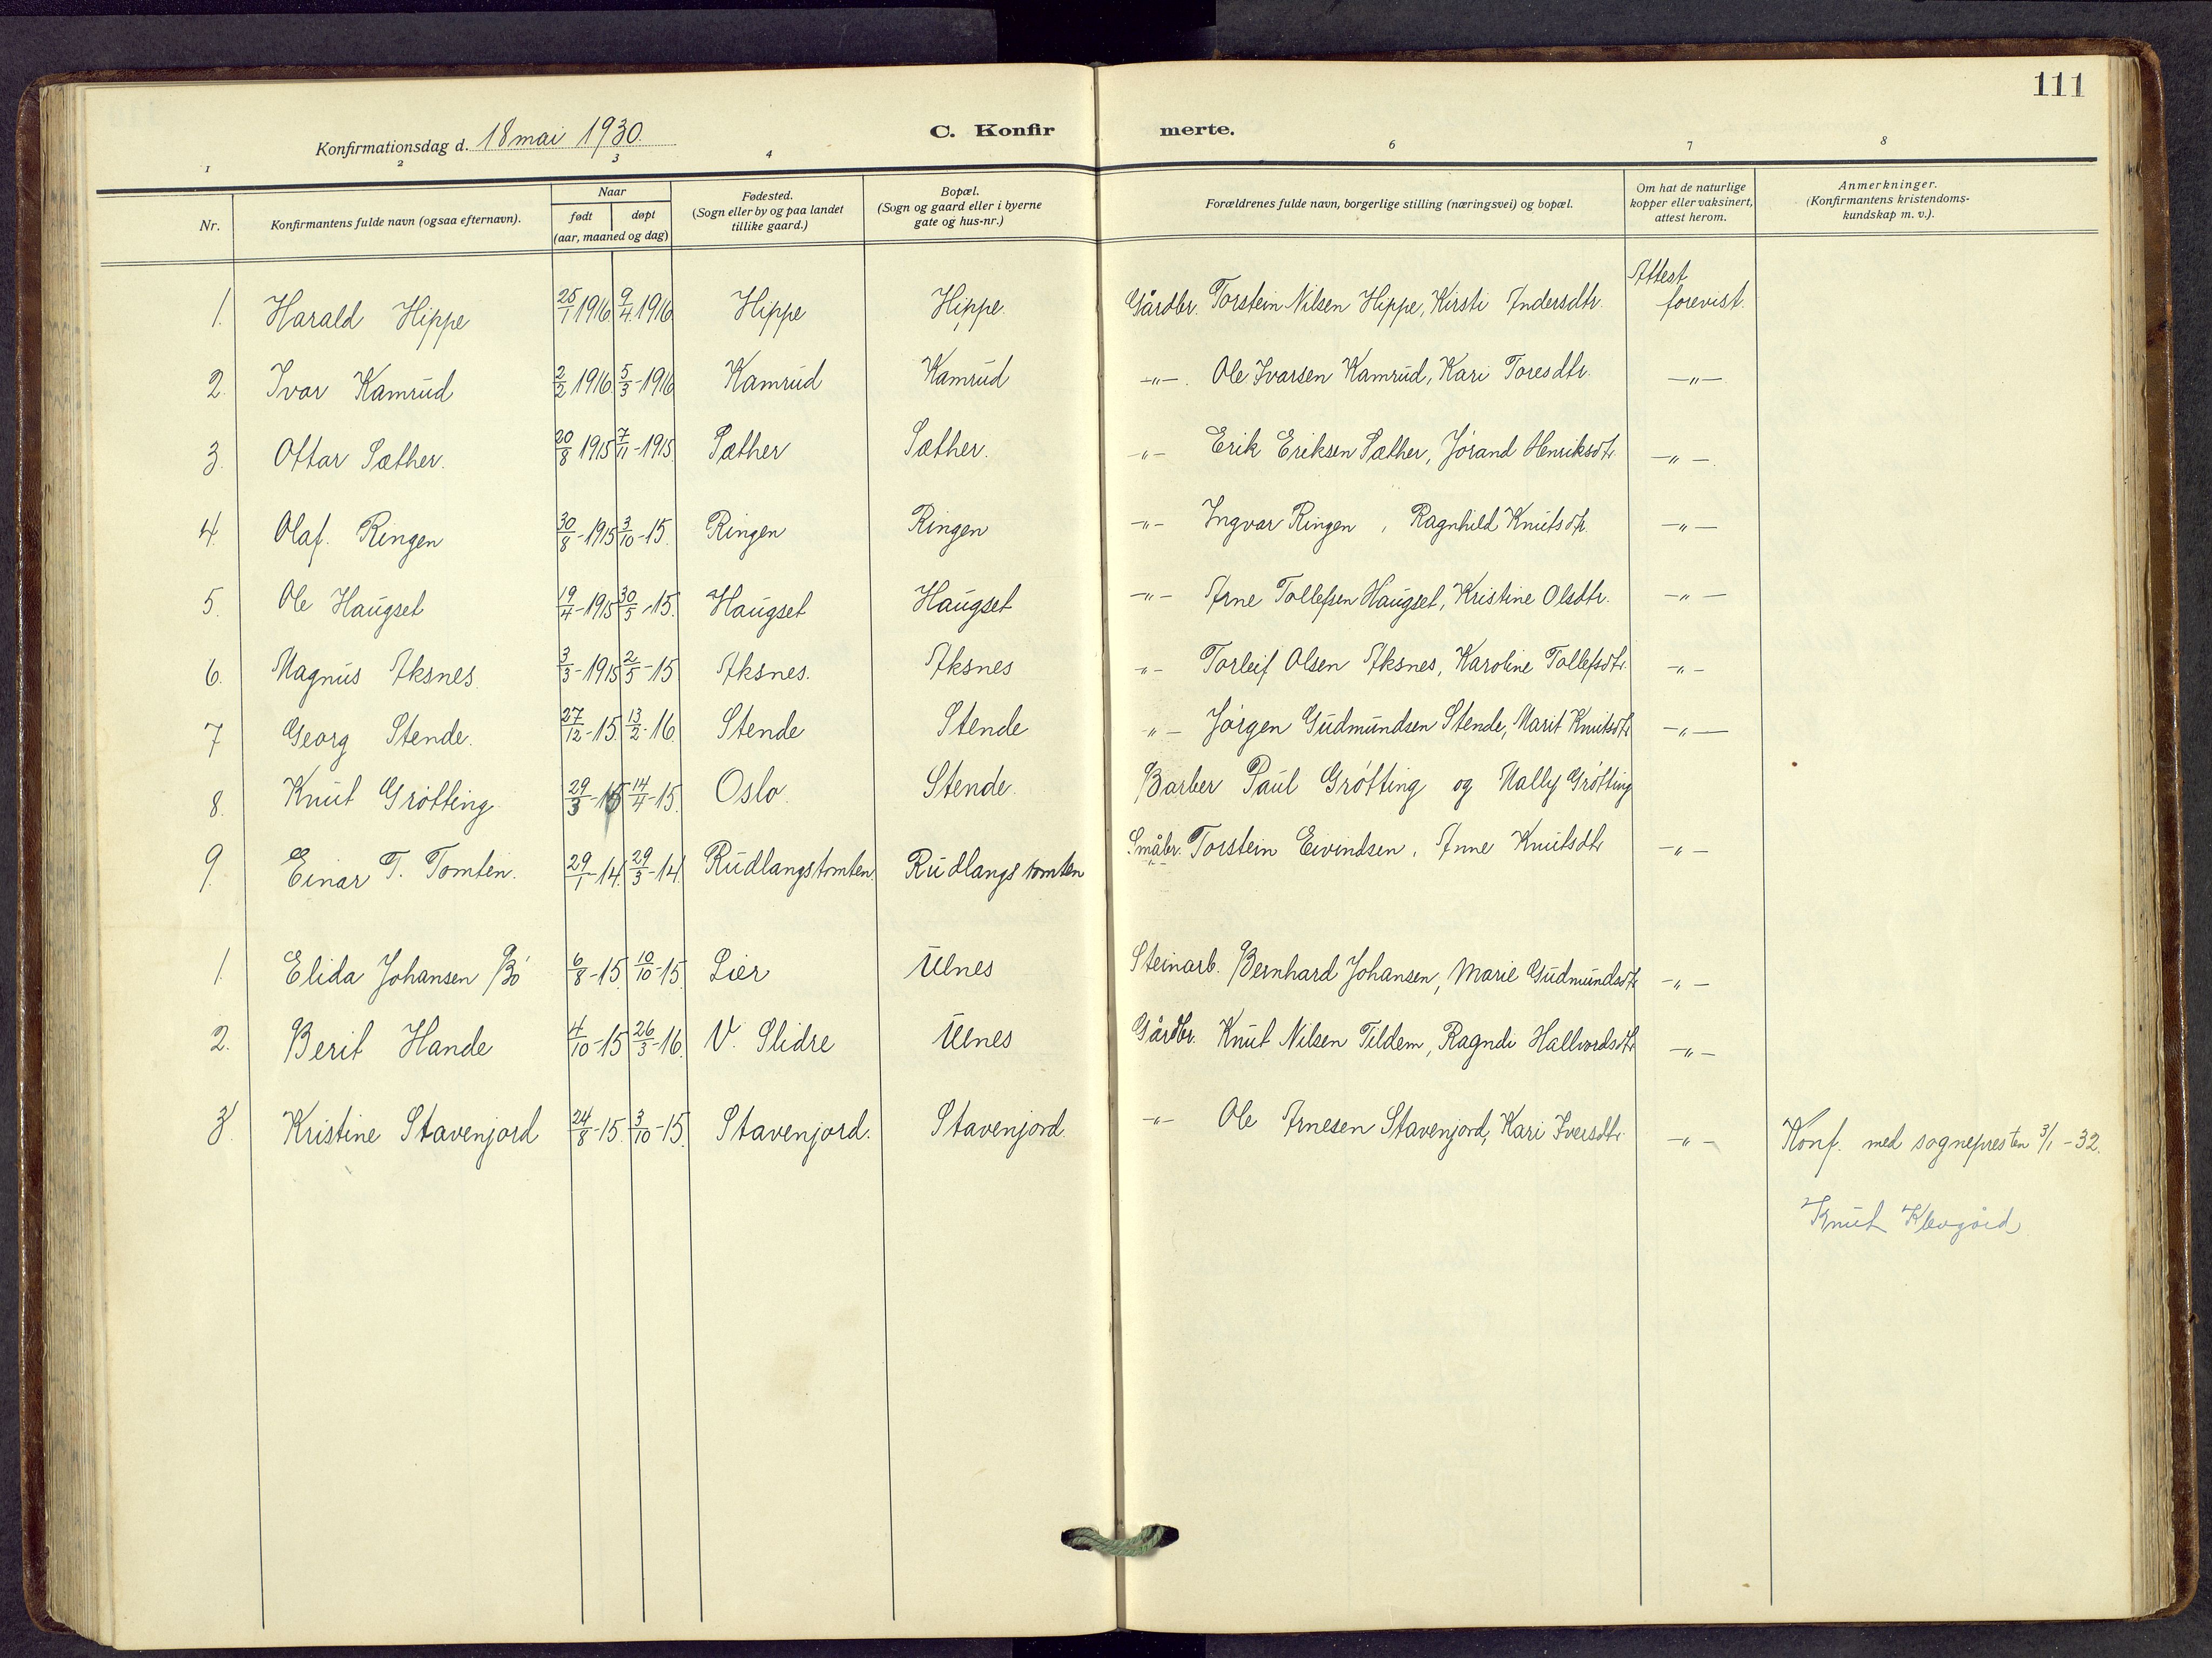 111
Konfirmationsdag d. 18 mai 1930.
C. Konfirmerte.
1 2 3 4 6 7 8
Nr. | Konfirmantens fulde navn (ogsaa efternavn). | Naar født døpt (aar, maaned og dag) | Fødested. (Sogn eller by og paa landet tillike gaard.) | Bopæl. (Sogn og gaard eller i byerne gate og hus-nr.) | Forældrenes fulde navn, borgerlige stilling (næringsvei) og bopæl. | Om hat de naturlige kopper eller vaksinert, attest herom. | Anmerkninger. (Konfirmantens kristendoms-kundskap m. v.).
1. Harald Hippe 25/1 1916 9/4 1916 Hippe Hippe. Gårdbr. Torstein Nilsen Hippe, Kirsti Andersdtr. Attest forevist.
2. Ivar Kamrud 2/2 1916 5/3-1916 Kamrud Kamrud -"-. Ole Ivarsen Kamrud, Kari Toresdtr. -"-
3. Ottar Sæther. 20/8 1915 7/11-1915 Sæther Sæther. -"- Erik Eriksen Sæther, Jørand Henriksdtr. -"-
4. Olaf Ringen 30/8-1915 3/10-15. Ringen Ringen -"- Ingvar Ringen, Ragnhild Knutsdtr. -"-
5. Ole Haugset 19/4-1915 30/5-15. Haugset Haugset -"- Arne Tollefsen Haugset, Kristine Olsdtr. -"-
6. Magnus Aksnes. 3/3-1915 2/5-15 Aksnes. Aksnes "- Torleif Olsen Aksnes, Karoline Tollefsdtr. -"-
7 Georg Stende. 27/12-15. 13/2-16. Stende Stende "- Jørgen Gudmundsen Stende, Marit Knutsdtr -"-
8. Knut Grøtting 29/3-15 14/4-15. Oslo. Stende. Barber Paul Grøtting og Nally Grøtting
9. Einar T. Tomten. 29/1-14. 29/3-14. Rudlangstomten. Rudlangstomten Småbr. Torstein Eivindsen, Anne Knutsdtr -"-
1. Elida Johansen Bø 6/8-15. 10/10-15. Lier Ulnes Steinarb. Bernhard Johansen, Marie Gudmundsdtr -"-
2. Berit Hande 4/10-15 26/3-16. V. Slidre Ulnes Gårdbr. Knut Nilsen Tildem, Ragndi Hallvordsdtr -"-
3. Kristine Stavenjord 24/8-15. 3/10-15. Stavenjord. Stavenjord. -"- Ole Arnesen Stavenjord, Kari Iversdtr. -"- Konf. med sognepresten 3/1-32.
Knut Klevgård